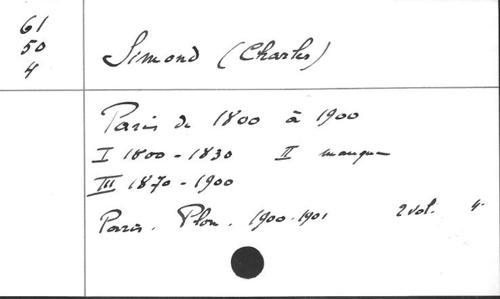 61
50
4
Simond (Charles)
Paris de 1800 à 1900
I 1800-1830 II manque
III 1870-1900
Paris. Plon. 1900-1901 2 vol. 4